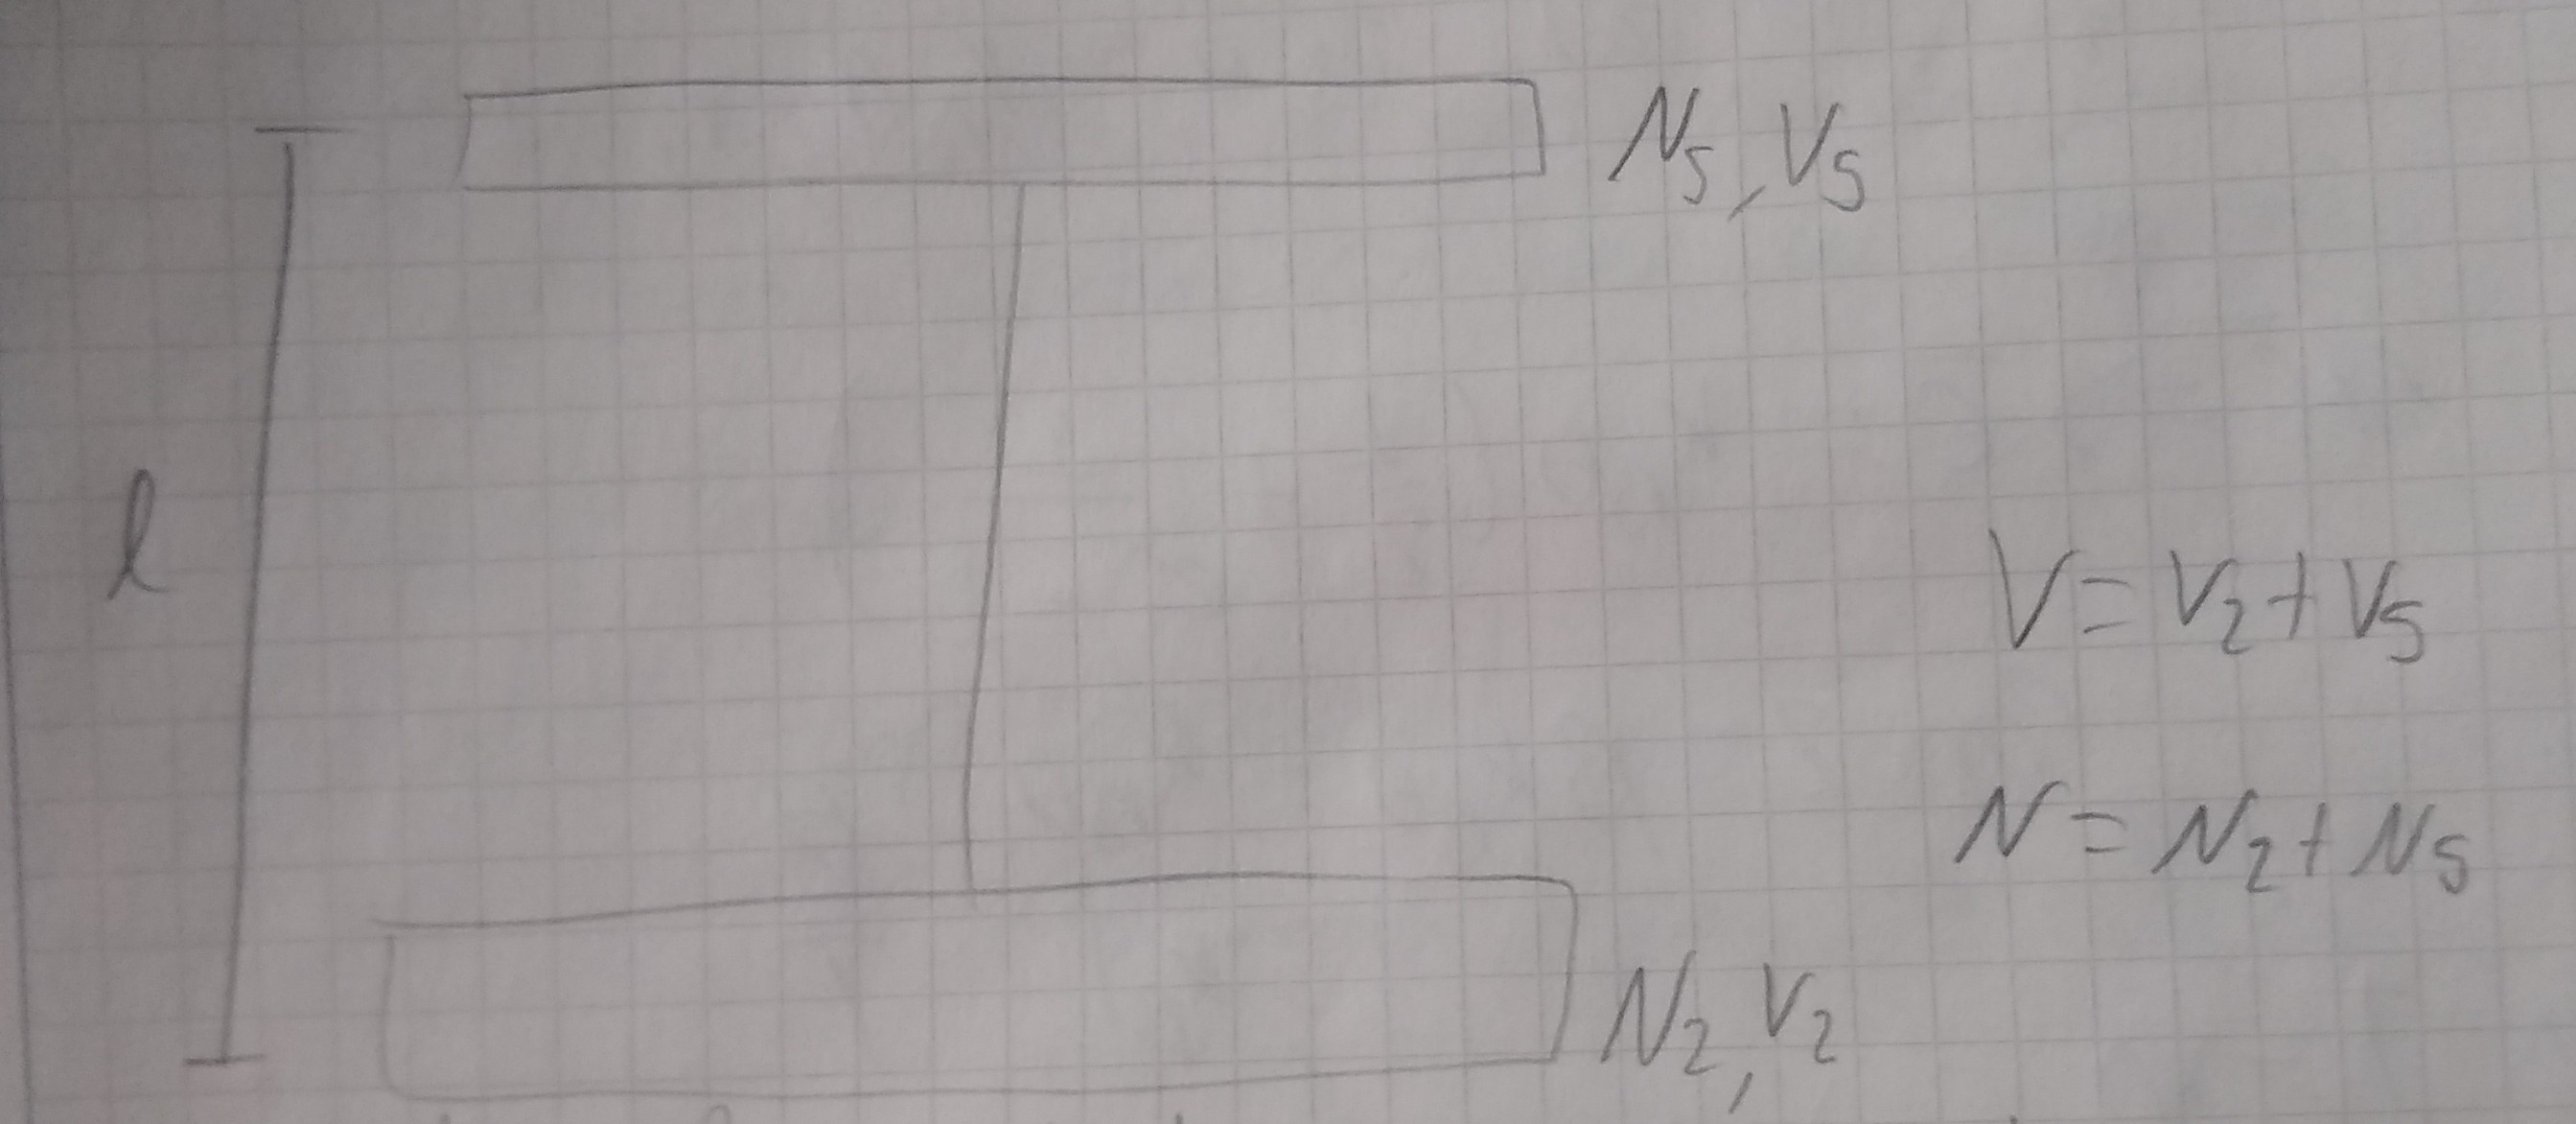 N5, V5
l
V = V2 + V5
N = N2 + N5
N2, V2